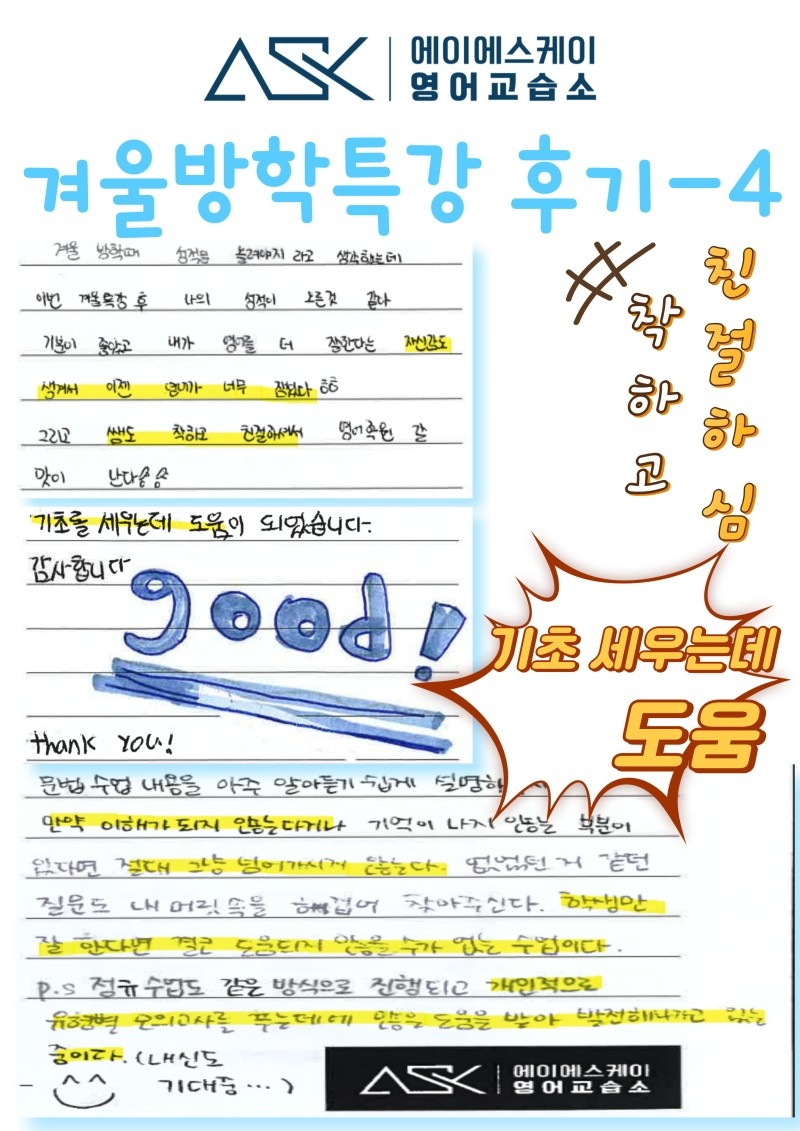 ASK
에이에스케이
영어교습소
겨울방학특강 후기-4
겨울 방학때 성적을 올려야지 라고 생각하는데
이번 겨울특강 후 나의 성적이 오른것 같다
기분이 좋았고 내가 영어를 더 잘한다는 자신감도
생겨서 이젠 영어가 너무 쉽다 ㅎㅎ
그리고 쌤도 착하고 친절하셔서 영어학원 갈
맛이 난다 ㅎㅎ
착하고
친절하심
기초를 세우는데 도움이 되었습니다.
감사합니다
good!
thank you!
기초 세우는데
도움
문법 수업 내용을 아주 알아듣기 쉽게 설명하
만약 이해가 되지 않는다거나 기억이 나지 않는 부분이
있다면 절대 그냥 넘어가시지 않는다. 없었던 거 같던
질문도 내 머릿속을 헤집어 찾아주신다. 학생만
잘 한다면 결코 도움되지 않을 수가 없는 수업이다.
p.s 정규수업도 같은 방식으로 진행되고 개인적으로
유형별 모의고사를 푸는데에 많은 도움을 받아 발전해나가고 있는
중이다. (내신도
기대중...)
ASK
에이에스케이
영어교습소